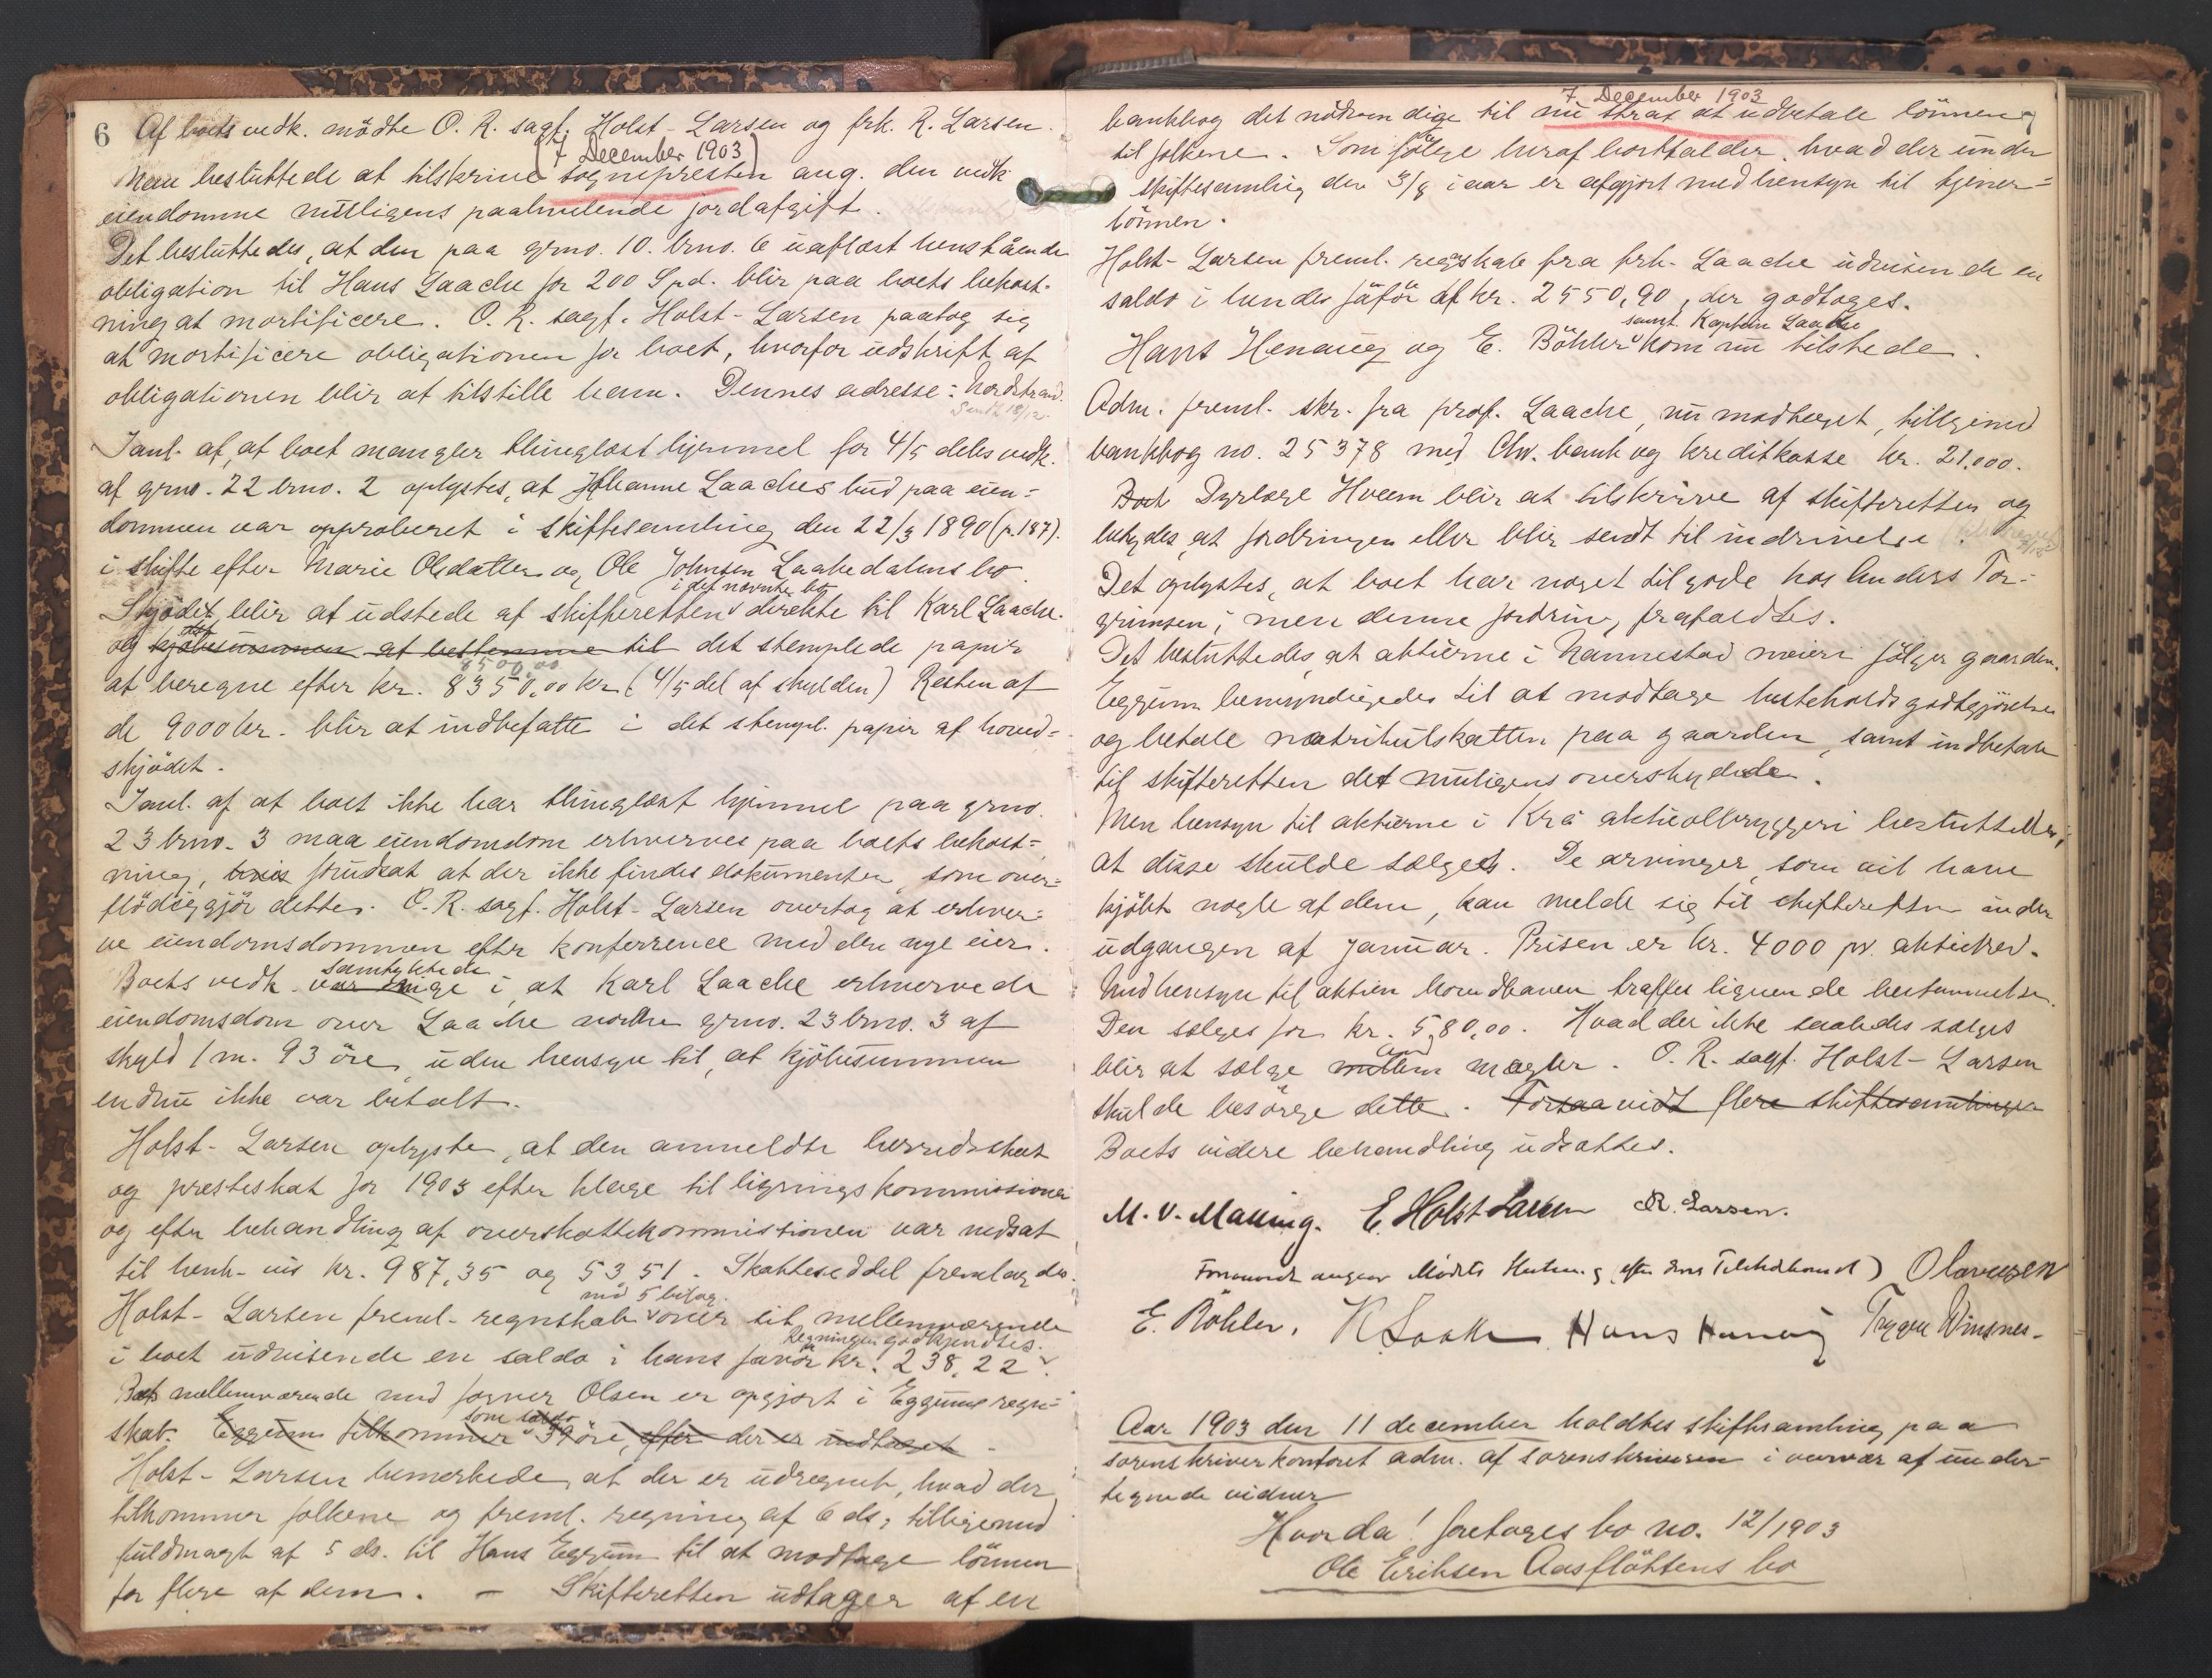 6 Af boets vedk. mödte O. R. sagf. Holst-Larsen og frk. R. Larsen.
(7 December 1903)
Man besluttede at tilskrive sognepresten ang. den vedk
eiendomme muligens paahvilende jordafgift.
Det besluttedes, at den paa grno. 10. brno. 6 uaflæst henstående
obligation til Hans Laache for 200 Spd. blir paa boets bekost-
ning at mortificere. O. R. sagf. Holst-Larsen paatog sig
at mortificere obligationen for boet, hvorfor udskrift af
obligationen blir at tilstille ham. Dennes adresse: Nordstrand.
Sendt 18/12.
I anl. af, at boet mangler thinglæst hjemmel for 4/5 deles vedk.
af grno. 22 brno. 2 oplystes, at Johanne Laaches bud paa eien=
dommen var approberet i skiftesamling den 22/3 1890 (p. 187).
i skifte efter Marie Olsdatter og Ole Johnsen Laakedalens bo.
i det nævnte bo
Skjödet blir at udstede af skifteretten direkte til Karl Laache.
og kjöbesummen at bestemme til det stemplede papir
8500,00
at beregne efter kr. 8350,00 kr (4/5 del af skylden) Resten af
de 9000 kr. blir at indbefatte i det stempl. papir af hoved=
skjödet.
I anl. af at boet ikke har thinglæst hjemmel paa grno.
23 brno. 3 maa eiendomdom erhverves paa boets bekost=
ning, hvis forudsat at der ikke findes dokumenter, som over=
flödiggjör dette. O. R. sagf. Holst-Larsen overtog at erhver=
ve eiendomsdommen efter konferrence med den nye eier.
samtykkede
Boets vedk. var enige i, at Karl Laache erhvervede
eiendomsdom over Laache nordre grno. 23 brno. 3 af
skyld 1 m. 93 öre, uden hensyn til, at kjöbesummen
endnu ikke var betalt.
Holst-Larsen oplyste, at den anmeldte herredsskat
og presteskat for 1903 efter klage til ligningskommissionen
og efter behandling af overskattekommissionen var nedsat
til henh.vis kr. 987,35 og 53,51. Skatteseddel fremlagdes.
med 5 bilag.
Holst-Larsen freml. regnskab over sit mellemværende
Regningen godkjendtes.
i boet udvisende en saldo i hans favör kr. 238,22.
Boets mellemværende med forver Olsen er opgjort i Eggums regn=
skab. Eggum tilkommer som saldo 39 öre, efter der er indtaget.
Holst-Larsen bemerkede, at der er udregnet, hvad der
tilkommer folkene og freml. regning af 6 ds. tilligemed
fuldmagt af 5 ds. til Hans Eggum til at modtage lönnen
for flere af dem. – Skifteretten udtager af en
7 December 1903
bankbog det nödvendige til nu strax at udbetale lönnen
til folkene. Som fölge heraf bortfalder, hvad der under
skiftesamling den 3/9 i aar er afgjort med hensyn til tjener=
lönnen.
Holst-Larsen freml. regnskab fra frk. Laache udvisende en
saldo i hendes favör af kr. 2550,90, der godtoges.
samt Kaptein Laache
Hans Henaug og E. Böhler kom nu tilstede.
Adm. freml. skr. fra prof. Laache, nu modtaget, tilligemed
bankbog no. 25378 med Chr. bank og kreditkasse kr. 21.000.
Boet Dyrlæge Hveem blir at tilskrive af skifteretten og
betydes, at fordringen eller blir sendt til inddrivelse.
Det oplystes, at boet har noget tilgode hos Anders Tor=
grimsen; men denne fordring frafaldtes.
Det besluttedes, at aktierne i Nannestad meieri fölger gaarden.
Eggum bemyndigedes til at modtage hesteholdsgodtgjörelse
og betale matrikulskatten paa gaarden, samt indbetale
til skifteretten det muligens overskydende.
Men hensyn til aktierne i Kra aktieölbryggeri besluttedes,
at disse skulde sælges. De arvinger, som vil have
kjöbt nogle af dem, kan melde sig til skifteretten inden
udgangen af januar. Prisen er kr. 4000 pr. aktiebrev.
Med hensyn til aktien Hovedbanen traffes lignende bestemmelse.
Den sælges for kr. 580,00. Hvad der ikke saaledes sælges
ved
blir at sælge mellem mægler. O. R. sagf. Holst-Larsen
skulde besörge dette. Forsaavidt flere skiftesamlinger
Boets videre behandling udsattes.
M. V. Malling. E. Holst Larsen R. Larsen.
Olavesen
E. Böhler. K Laache Hans Henaug Trygve Winsnes.
Aar 1903 den 11 december holdtes skiftesamling paa
sorenskriverkontoret adm. af sorenskriveren i overvær af under-
tegnede vidner
Hvorda! foretoges bo no. 12/1903
Ole Eriksen Aasflöttens bo